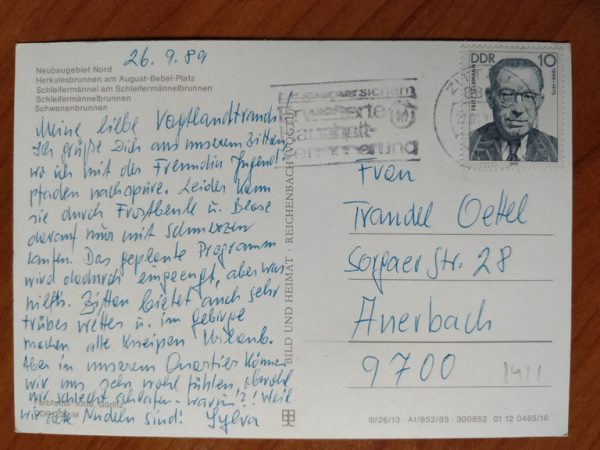 26.9.89
Neubaugebiet Nord
Herkulesbrunnen am August-Bebel-Platz
Schleifermännel am Schleifermännelbrunnen
Schleifermännelbrunnen
Schwanenbrunnen
Meine liebe Vogtlandtrandel!
Ich grüße Dich aus unserem Zittau,
wo ich mit der Freundin Jugend-
pfaden nachspüre. Leider kann
sie durch Frostbeule u. Blase
darauf nur mit Schmerzen
laufen. Das geplante Programm
wird dadurch eingeengt, aber was
hilfts. Zittau bietet auch sehr
trübes Wetter u. im Gebirge
machen alle Kneipen Urlaub.
Aber in unserem Quartier können
wir uns sehr wohl fühlen, obwohl
wir schlecht schlafen - warum?! Weil
wir alte Nudeln sind! Sylva
BILD UND HEIMAT · REICHENBACH (VOGTL)
DDR 10
erweiterte
Haushalt-
versicherung
Frau
Trandel Oettel
Sorgaer Str. 28
Auerbach
9700
1411
III/26/13 · A1/852/85 · 300852 01 12 0465/16